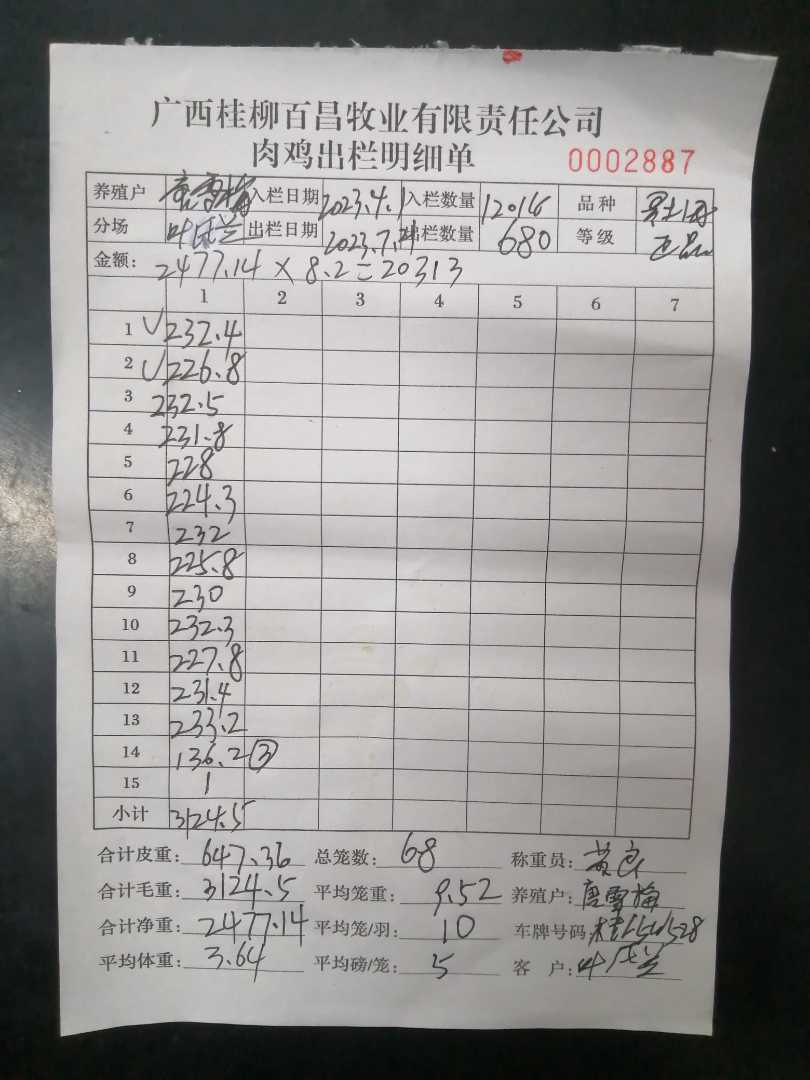 广西桂柳百昌牧业有限责任公司
肉鸡出栏明细单 0002887
养殖户 唐雪梅 入栏日期 2023.4.1 入栏数量 12016 品种
分场 叶庆兰 出栏日期 2023.7.21 出栏数量 680 等级 正品
金额: 2477.14 × 8.2 = 20313
1 2 3 4 5 6 7
1 √ 232.4
2 √ 226.8
3 232.5
4 231.8
5 228
6 224.3
7 232
8 225.8
9 230
10 232.3
11 227.8
12 231.4
13 233.2
14 136.2 ③
15 1
小计 3124.5
合计皮重: 647.36 总笼数: 68 称重员: 黄良
合计毛重: 3124.5 平均笼重: 9.52 养殖户: 唐雪梅
合计净重: 2477.14 平均笼/羽: 10 车牌号码:
平均体重: 3.64 平均磅/笼: 5 客 户: 叶庆兰